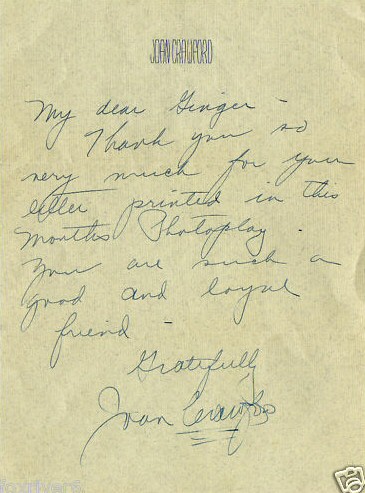 JOAN CRAWFORD
My dear Ginger –
Thank you so
very much for your
letter printed in this
months Photoplay.
You are such a
good and loyal
friend –
Gratefully
Joan Crawford
foxrivers